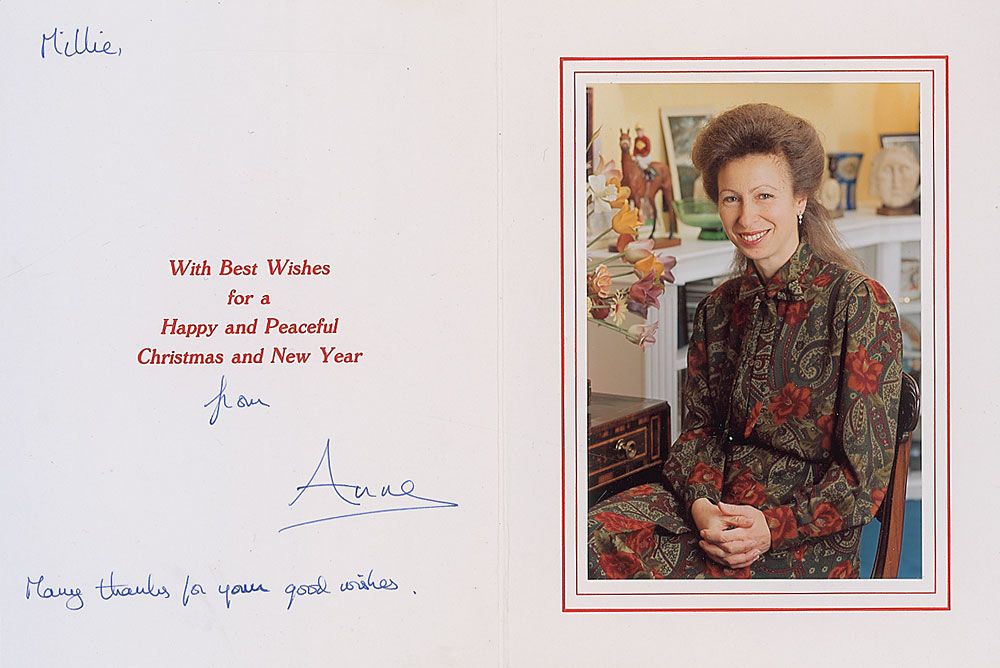 Millie,
With Best Wishes
for a
Happy and Peaceful
Christmas and New Year
from
Anne
Many thanks for your good wishes.